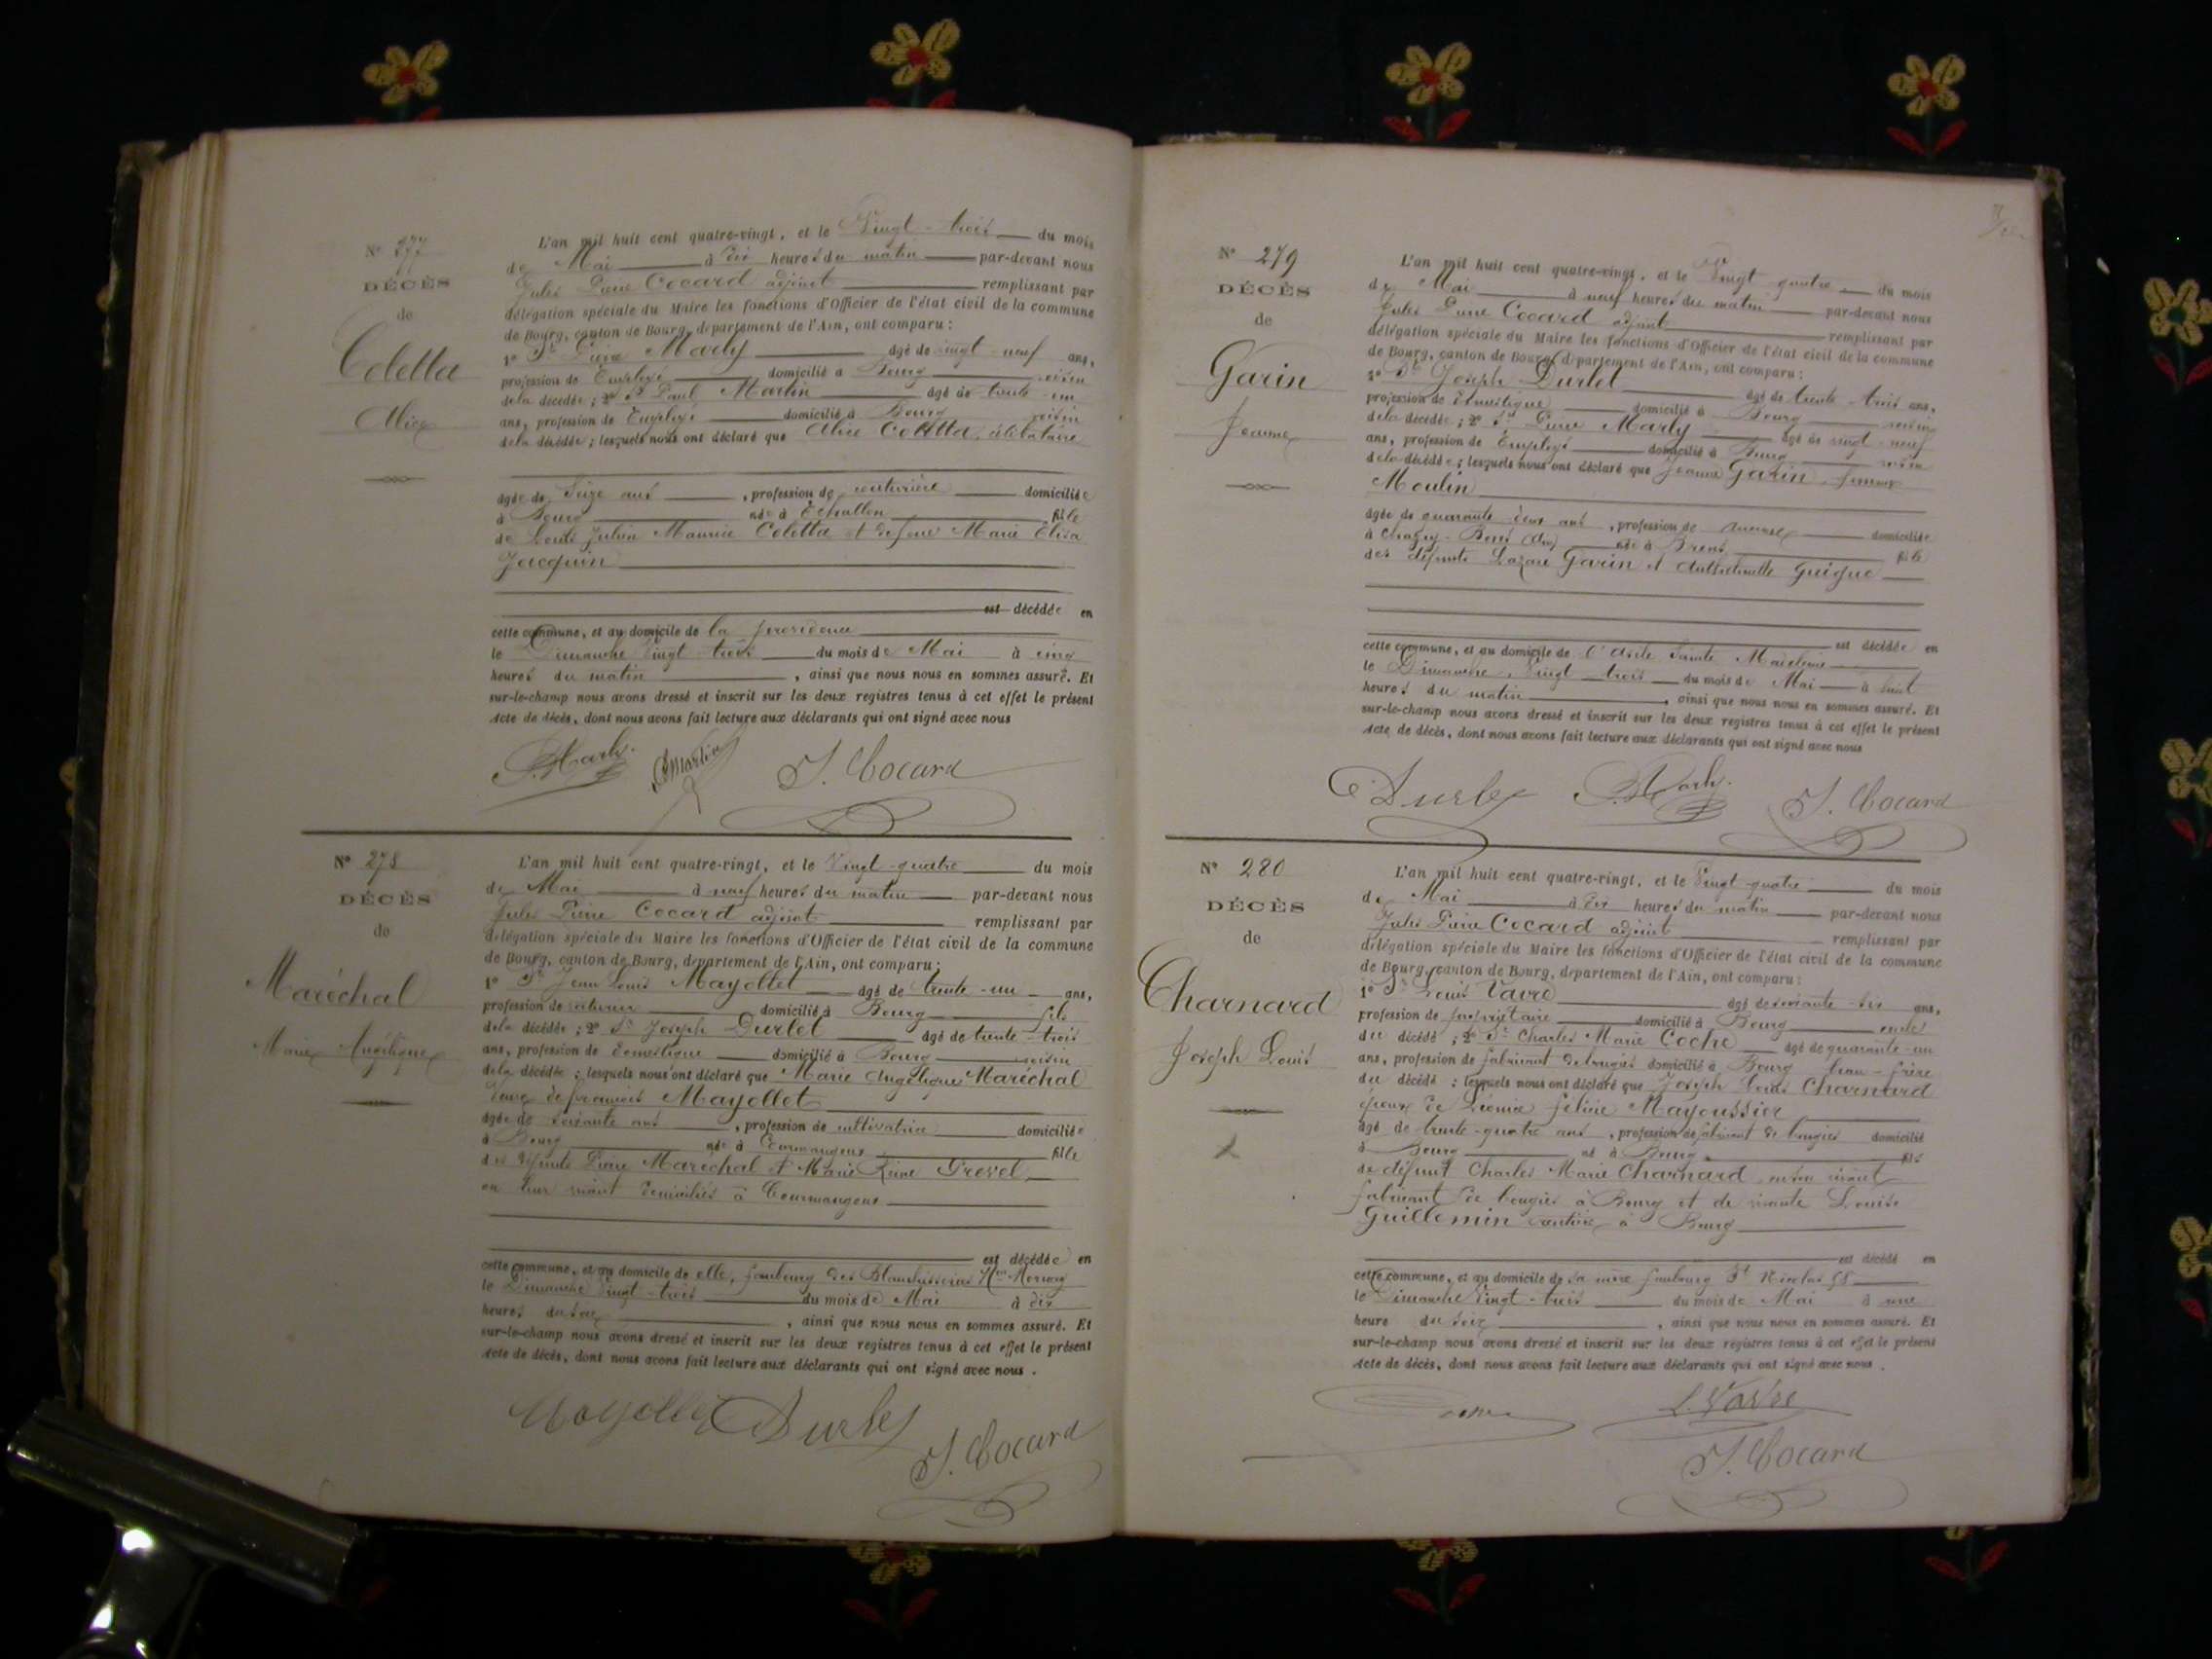 N° 277
DÉCÈS
de
Coletta
Alice
L'an mil huit cent quatre-vingt, et le Vingt-trois du mois
de Mai à dix heures du matin par-devant nous
Jules Pierre Cocard adjoint remplissant par
délégation spéciale du Maire les fonctions d'Officier de l'état civil de la commune
de Bourg, canton de Bourg, département de l'Ain, ont comparu :
1° Sr Pierre Marly âgé de vingt-neuf ans,
profession de Employé domicilié à Bourg voisin
de la décédée ; 2° Sr Paul Martin âgé de trente-un
ans, profession de Employé domicilié à Bourg voisin
de la décédée ; lesquels nous ont déclaré que Alice Coletta, célibataire
âgée de Seize ans, profession de couturière domiciliée
à Bourg née à Echallon fille
de Louis Julien Maurice Coletta et de feue Marie Elisa
Jacquin
est décédée en
cette commune, et au domicile de la providence
le Dimanche Vingt-trois du mois de Mai à cinq
heures du matin, ainsi que nous nous en sommes assuré. Et
sur-le-champ nous avons dressé et inscrit sur les deux registres tenus à cet effet le présent
Acte de décès, dont nous avons fait lecture aux déclarants qui ont signé avec nous
P. Marly. Martin J. Cocard
N° 278
DÉCÈS
de
Maréchal
Marie Angélique
L'an mil huit cent quatre-vingt, et le Vingt-quatre du mois
de Mai à neuf heures du matin par-devant nous
Jules Pierre Cocard adjoint remplissant par
délégation spéciale du Maire les fonctions d'Officier de l'état civil de la commune
de Bourg, canton de Bourg, département de l'Ain, ont comparu :
1° Sr Jean Louis Mayollet âgé de trente-un ans,
profession de domicilié à Bourg fils
de la décédée ; 2° Sr Joseph Durlet âgé de trente-trois
ans, profession de Domestique domicilié à Bourg voisin
de la décédée ; lesquels nous ont déclaré que Marie Angélique Maréchal
Veuve de françois Mayollet
âgée de soixante ans, profession de cultivatrice domiciliée
à Bourg née à Cormangoux fille
des défunts Pierre Maréchal et Marie Reine Grevel
en leur vivant domiciliés à Courmangoux
est décédée en
cette commune, et au domicile de elle, faubourg des Blanchisseries
le Dimanche Vingt-trois du mois de Mai à dix
heures du soir, ainsi que nous nous en sommes assuré. Et
sur-le-champ nous avons dressé et inscrit sur les deux registres tenus à cet effet le présent
Acte de décès, dont nous avons fait lecture aux déclarants qui ont signé avec nous.
Mayollet Durlet
J. Cocard
N° 279
DÉCÈS
de
Garin
Jeanne
L'an mil huit cent quatre-vingt, et le Vingt quatre du mois
de Mai à neuf heures du matin par-devant nous
Jules Pierre Cocard adjoint remplissant par
délégation spéciale du Maire les fonctions d'Officier de l'état civil de la commune
de Bourg, canton de Bourg, département de l'Ain, ont comparu :
1° Sr Joseph Durlet âgé de trente-trois ans,
profession de Domestique domicilié à Bourg voisin
de la décédée ; 2° Sr Pierre Marly âgé de vingt-neuf
ans, profession de Employé domicilié à Bourg voisin
de la décédée ; lesquels nous ont déclaré que Jeanne Garin, femme
Moulin
âgée de quarante deux ans, profession de domiciliée
à née à Brens fille
des défunts Lazare Garin et Guigue
est décédée en
cette commune, et au domicile de l'Asile Sainte Madeleine
le Dimanche, Vingt-trois du mois de Mai à huit
heures du matin, ainsi que nous nous en sommes assuré. Et
sur-le-champ nous avons dressé et inscrit sur les deux registres tenus à cet effet le présent
Acte de décès, dont nous avons fait lecture aux déclarants qui ont signé avec nous
Durlet P. Marly. J. Cocard
N° 280
DÉCÈS
de
Charnard
Joseph Louis
L'an mil huit cent quatre-vingt, et le Vingt-quatre du mois
de Mai à dix heures du matin par-devant nous
Jules Pierre Cocard adjoint remplissant par
délégation spéciale du Maire les fonctions d'Officier de l'état civil de la commune
de Bourg, canton de Bourg, département de l'Ain, ont comparu :
1° Sr Louis Vavre âgé de soixante-dix ans,
profession de propriétaire domicilié à Bourg oncle
du décédé ; 2° Sr Charles Marie Coche âgé de quarante-un
ans, profession de fabricant de bougies domicilié à Bourg beau-frère
du décédé ; lesquels nous ont déclaré que Joseph Louis Charnard
époux de Léonie Mayoussier
âgé de trente-quatre ans, profession de fabricant de bougies domicilié
à Bourg né à Bourg fils
de défunt Charles Marie Charnard, en son vivant
fabricant de bougies à Bourg et de vivante Louise
Guillemin rentière à Bourg
est décédé en
cette commune, et au domicile de sa mère faubourg St Nicolas 58
le Dimanche Vingt-trois du mois de Mai à une
heure du soir, ainsi que nous nous en sommes assuré. Et
sur-le-champ nous avons dressé et inscrit sur les deux registres tenus à cet effet le présent
Acte de décès, dont nous avons fait lecture aux déclarants qui ont signé avec nous.
L. Vavre
J. Cocard